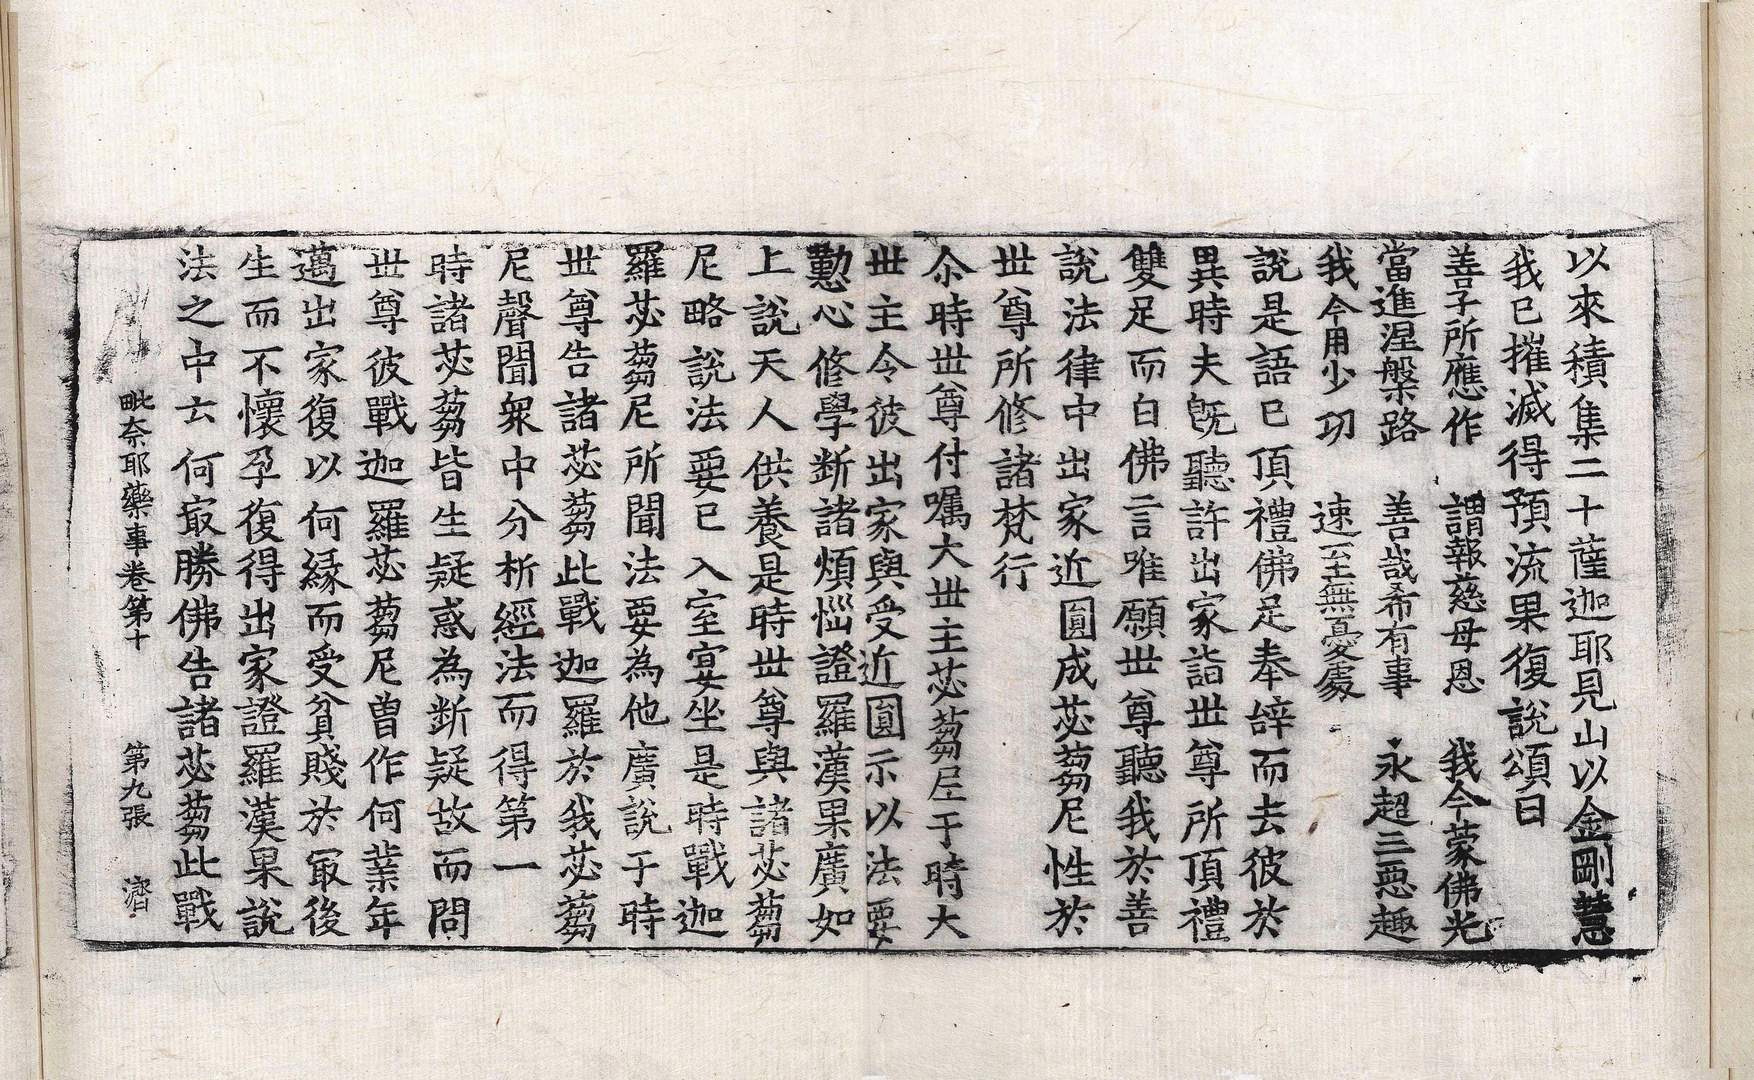 以來積集二十薩迦耶見山以金剛慧
我已摧滅得預流果復說頌曰
善子所應作　謂報慈母恩　我今蒙佛光
當進涅槃路　善哉希有事　永超三惡趣
我今用少功　速至無憂處
說是語已頂禮佛足奉辝而去彼於
異時夫旣聽許出家詣丗尊所頂禮
雙足而白佛言唯願丗尊聽我於善
說法律中出家近圓成苾蒭尼性於
丗尊所修諸梵行
尒時丗尊付囑大丗主苾蒭尼于時大
丗主令彼出家與受近圓示以法要
懃心修學斷諸煩惱證羅漢果廣如
上說天人供養是時丗尊與諸苾蒭
尼略說法要已入室宴坐是時戰迦
羅苾蒭尼所聞法要為他廣說于時
丗尊告諸苾蒭此戰迦羅於我苾蒭
尼聲聞衆中分析經法而得第一
時諸苾蒭皆生疑惑為斷疑故而問
丗尊彼戰迦羅苾蒭尼曽作何業年
邁出家復以何縁而受貧賤於㝡後
生而不懷孕復得出家證羅漢果說
法之中云何㝡勝佛告諸苾蒭此戰
毗奈耶藥事卷第十　第九張　濟